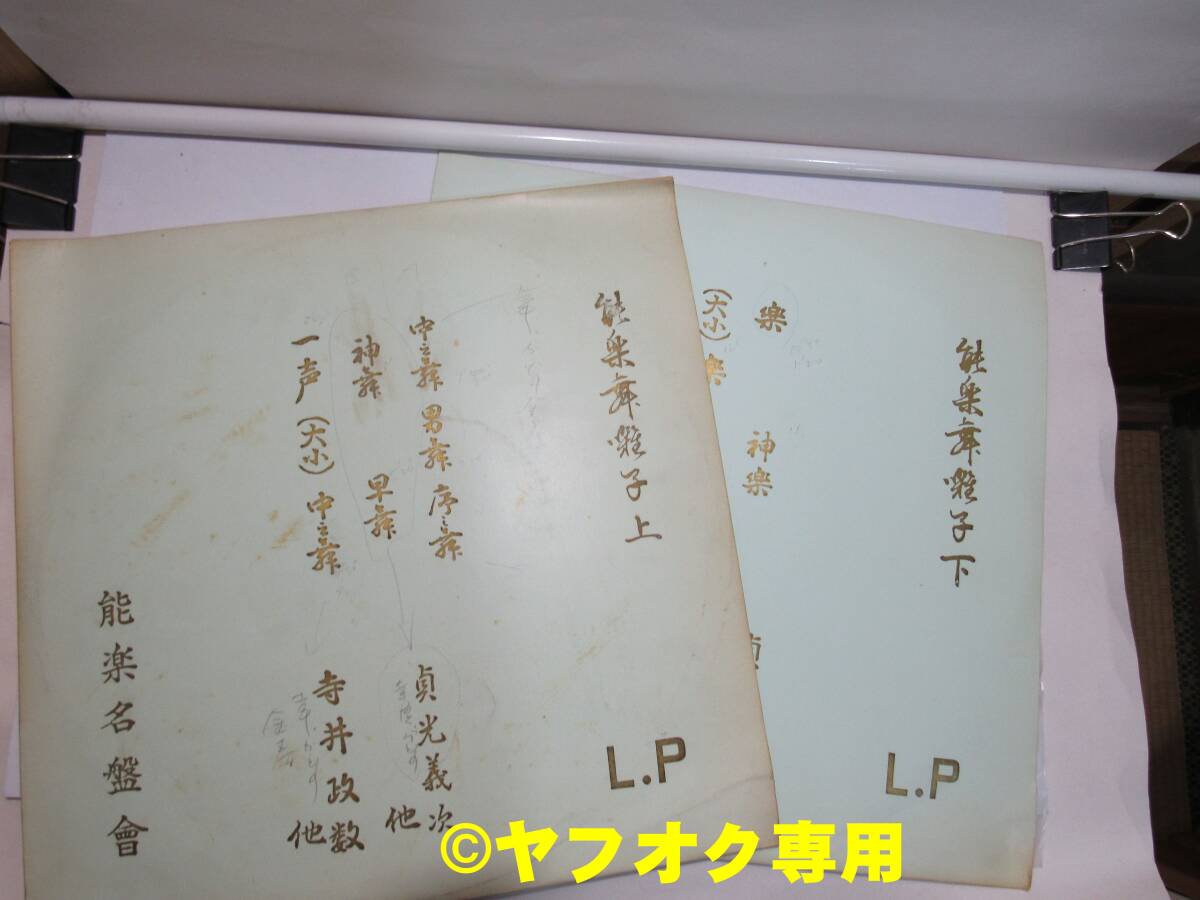 能楽舞囃子 上
中之舞 男舞 序之舞
神舞 早舞
一声 (大小) 中之舞
貞光義次
他
寺井政数
他
能楽名盤會
L.P
能楽舞囃子 下
楽 神楽
(大小) 楽
L.P
©ヤフオク専用